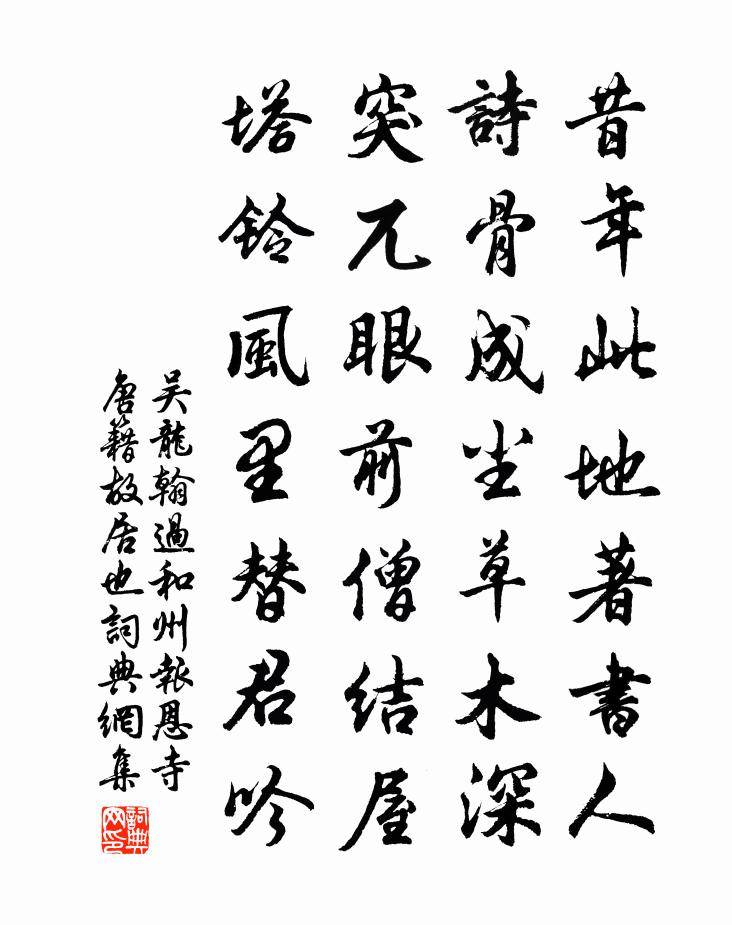 昔年此地著書人
詩骨成尘草木深
突兀眼前僧结屋
塔鈴風里替君吟
吴龍翰過和州報恩寺
唐籍故居也詞典網集
詞典网印